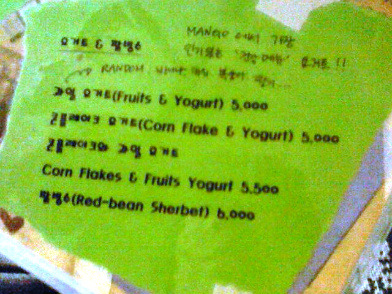 MANGO 에서 가장
요거트 & 팥빙수
인기있는 요거트 !!
RANDOM
과일 요거트(Fruits & Yogurt) 5,000
콘플레이크 요거트(Corn Flake & Yogurt) 5,000
콘플레이크와 과일 요거트
Corn Flakes & Fruits Yogurt 5,500
팥빙수(Red-bean Sherbet) 6,000